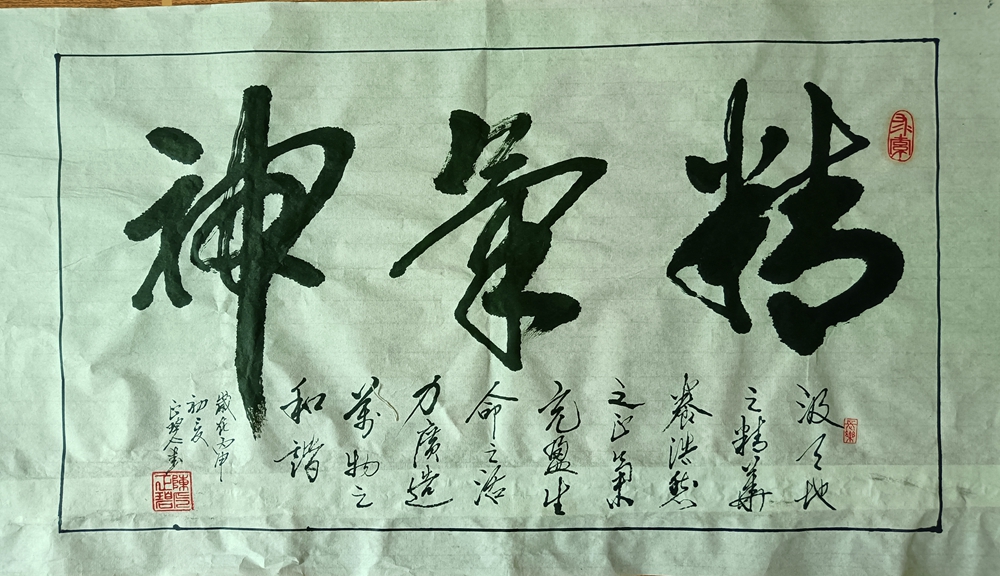 精氣神
汲天地
之精華
養浩然
之正氣
充盈生
命之活
力廣造
萬物之
和諧
歲在丙申
初夏